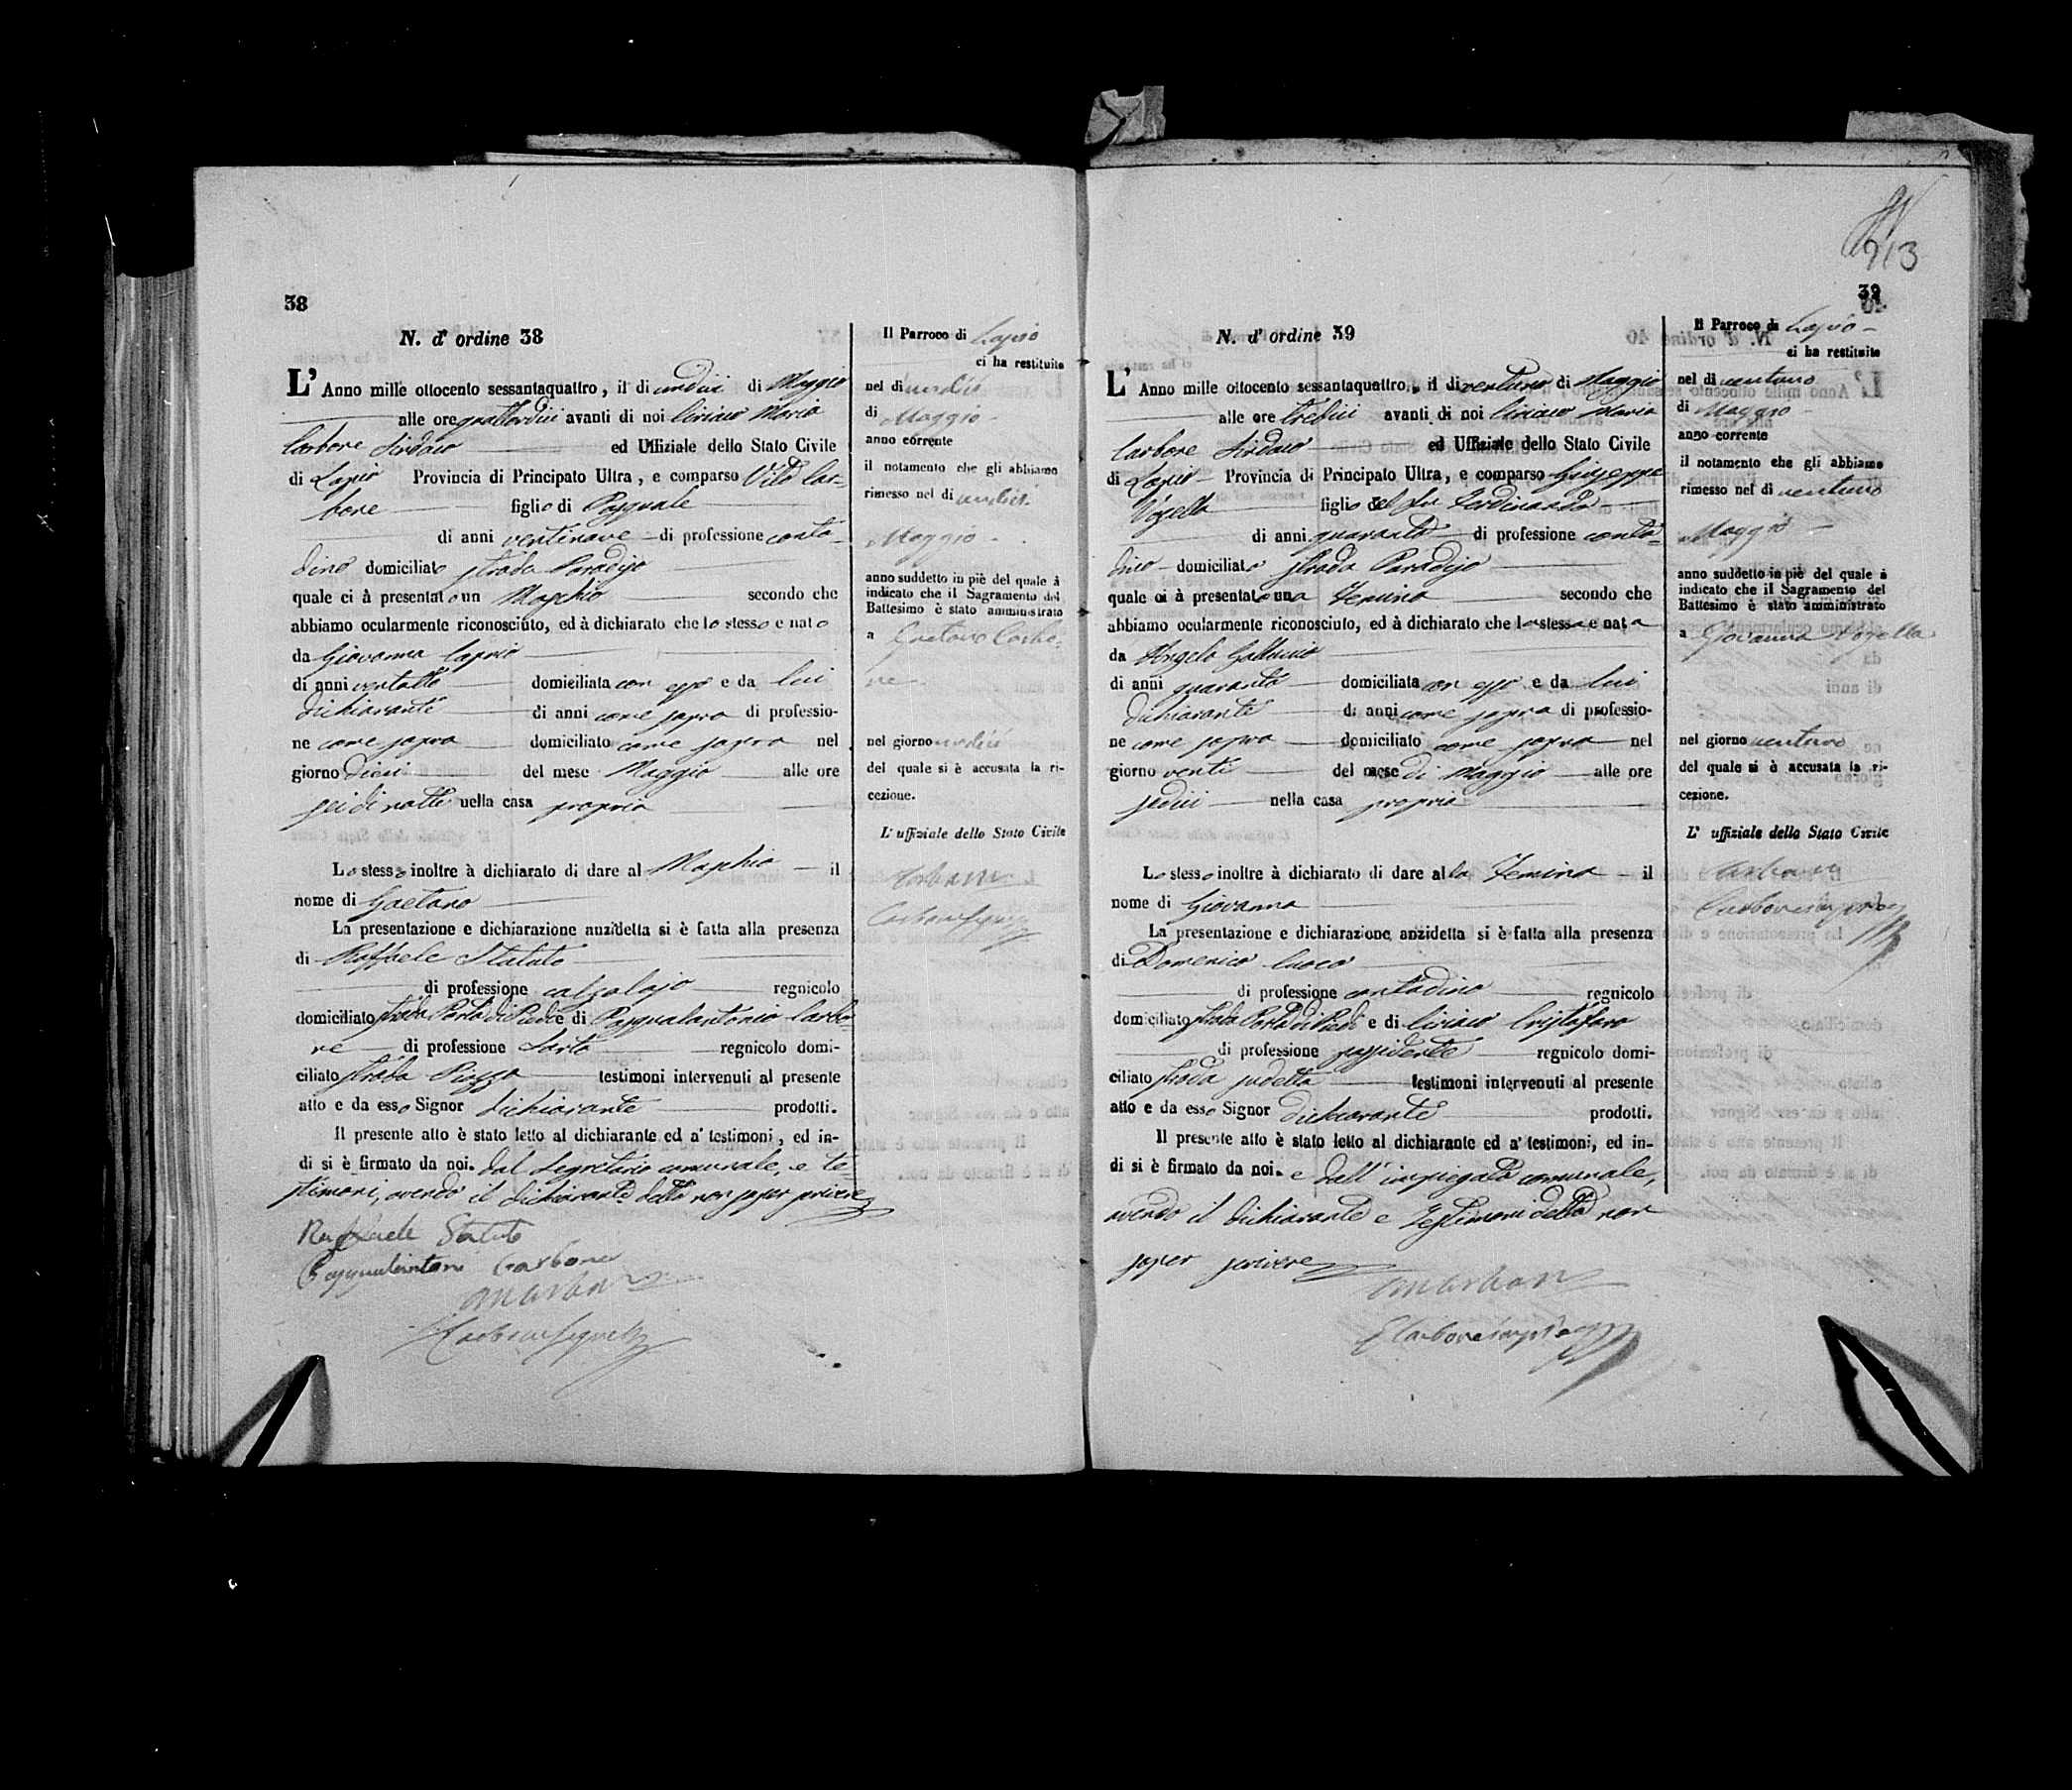 38
N. d' ordine 38
L' Anno mille ottocento sessantaquattro, il di undici di Maggio
alle ore quattordici avanti di noi Ciriaco Maria
Carbone Sindaco ed Uffiziale dello Stato Civile
di Lapio Provincia di Principato Ultra, e comparso Vito Car-
bone figlio di Pasquale
di anni ventinove di professione conta-
dino domiciliato strada Paradiso
quale ci à presentato un Maschio secondo che
abbiamo ocularmente riconosciuto, ed à dichiarato che lo stesso e nato
da Giovanna Caprio
di anni ventotto domiciliata con esso e da lui
dichiarante di anni come sopra di professio-
ne come sopra domiciliato come sopra nel
giorno dieci del mese Maggio alle ore
sei di notte nella casa propria
Lo stesso inoltre à dichiarato di dare al Maschio il
nome di Gaetano
La presentazione e dichiarazione anzidetta si è fatta alla presenza
di Raffaele Statuto
di professione calzolajo regnicolo
domiciliato strada Porta di Piedi e di Pasqualantonio Carbo-
ne di professione Sarto regnicolo domi-
ciliato strada Piazza testimoni intervenuti al presente
atto e da esso Signor dichiarante prodotti.
Il presente atto è stato letto al dichiarante ed a' testimoni, ed in-
di si è firmato da noi. dal Segretario comunale, e te-
stimoni, avendo il dichiarante detto non saper scrivere
Raffaele Statuto
Pasqualantonio Carbone
Il Parroco di Lapio
ci ha restituito
nel di undici
di Maggio
anno corrente
il notamento che gli abbiamo
rimesso nel di undici
Maggio
anno suddetto in piè del quale à
indicato che il Sagramento del
Battesimo è stato amministrato
a Gaetano Carbo-
ne
nel giorno undici
del quale si è accusata la ri-
cezione.
L' uffiziale dello Stato Civile
Carbone
213
39
N. d' ordine 39
L' Anno mille ottocento sessantaquattro, il di ventuno di Maggio
alle ore tredici avanti di noi Ciriaco Maria
Carbone Sindaco ed Uffiziale dello Stato Civile
di Lapio Provincia di Principato Ultra, e comparso Giuseppe
figlio del fu Ferdinando
di anni quaranta di professione conta-
dino domiciliato strada Paradiso
quale ci à presentato una Femina secondo che
abbiamo ocularmente riconosciuto, ed à dichiarato che la stessa e nata
da Angela
di anni quaranta domiciliata con esso e da lui
dichiarante di anni come sopra di professio-
ne come sopra domiciliato come sopra nel
giorno venti del mese di Maggio alle ore
sedici nella casa propria
Lo stesso inoltre à dichiarato di dare alla Femina il
nome di Giovanna
La presentazione e dichiarazione anzidetta si è fatta alla presenza
di Domenico Cuoco
di professione contadino regnicolo
domiciliato strada Porta di Piedi e di Ciriaco Cristofaro
di professione possidente regnicolo domi-
ciliato strada sudetta testimoni intervenuti al presente
atto e da esso Signor dichiarante prodotti.
Il presente atto è stato letto al dichiarante ed a' testimoni, ed in-
di si è firmato da noi. e dall' impiegato comunale,
avendo il dichiarante e Testimoni detto non
saper scrivere
Il Parroco di Lapio
ci ha restituito
nel di ventuno
di Maggio
anno corrente
il notamento che gli abbiamo
rimesso nel di ventuno
Maggio
anno suddetto in piè del quale à
indicato che il Sagramento del
Battesimo è stato amministrato
a Giovanna
nel giorno ventuno
del quale si è accusata la ri-
cezione.
L' uffiziale dello Stato Civile
Carbone